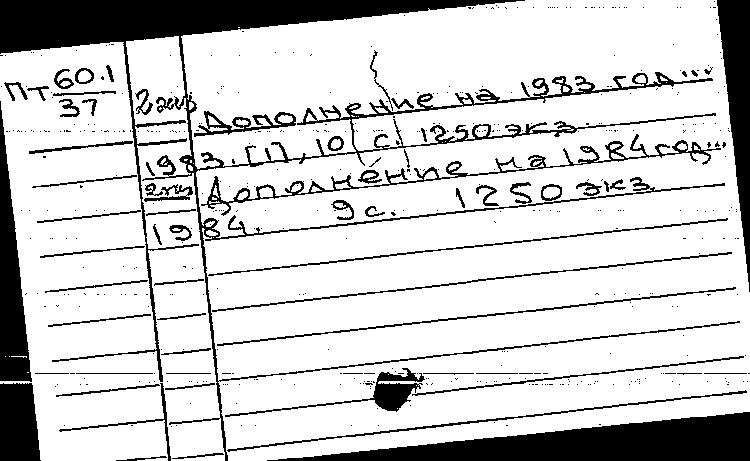 Пт 60.1/37
2 экз Дополнение на 1983 год...
1983. [1], 10 с. 1250 экз.
2 экз Дополнение на 1984 год...
1984. 9 с. 1250 экз